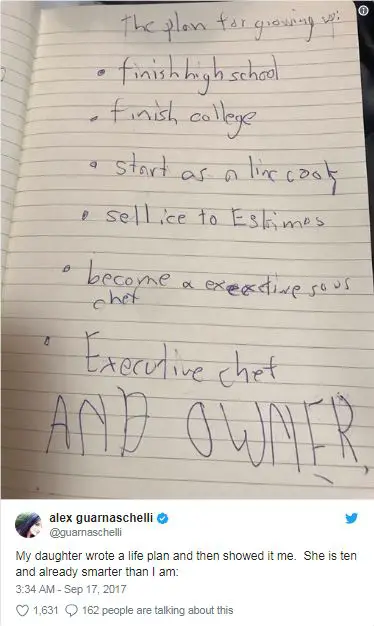 The plan for growing up:
• finish high school
• finish college
• start as a line cook
• sell ice to Eskimos
• become a executive sous
chef
• Executive chef
AND OWNER,
alex guarnaschelli
@guarnaschelli
My daughter wrote a life plan and then showed it me. She is ten
and already smarter than I am:
3:34 AM - Sep 17, 2017
1,631 162 people are talking about this